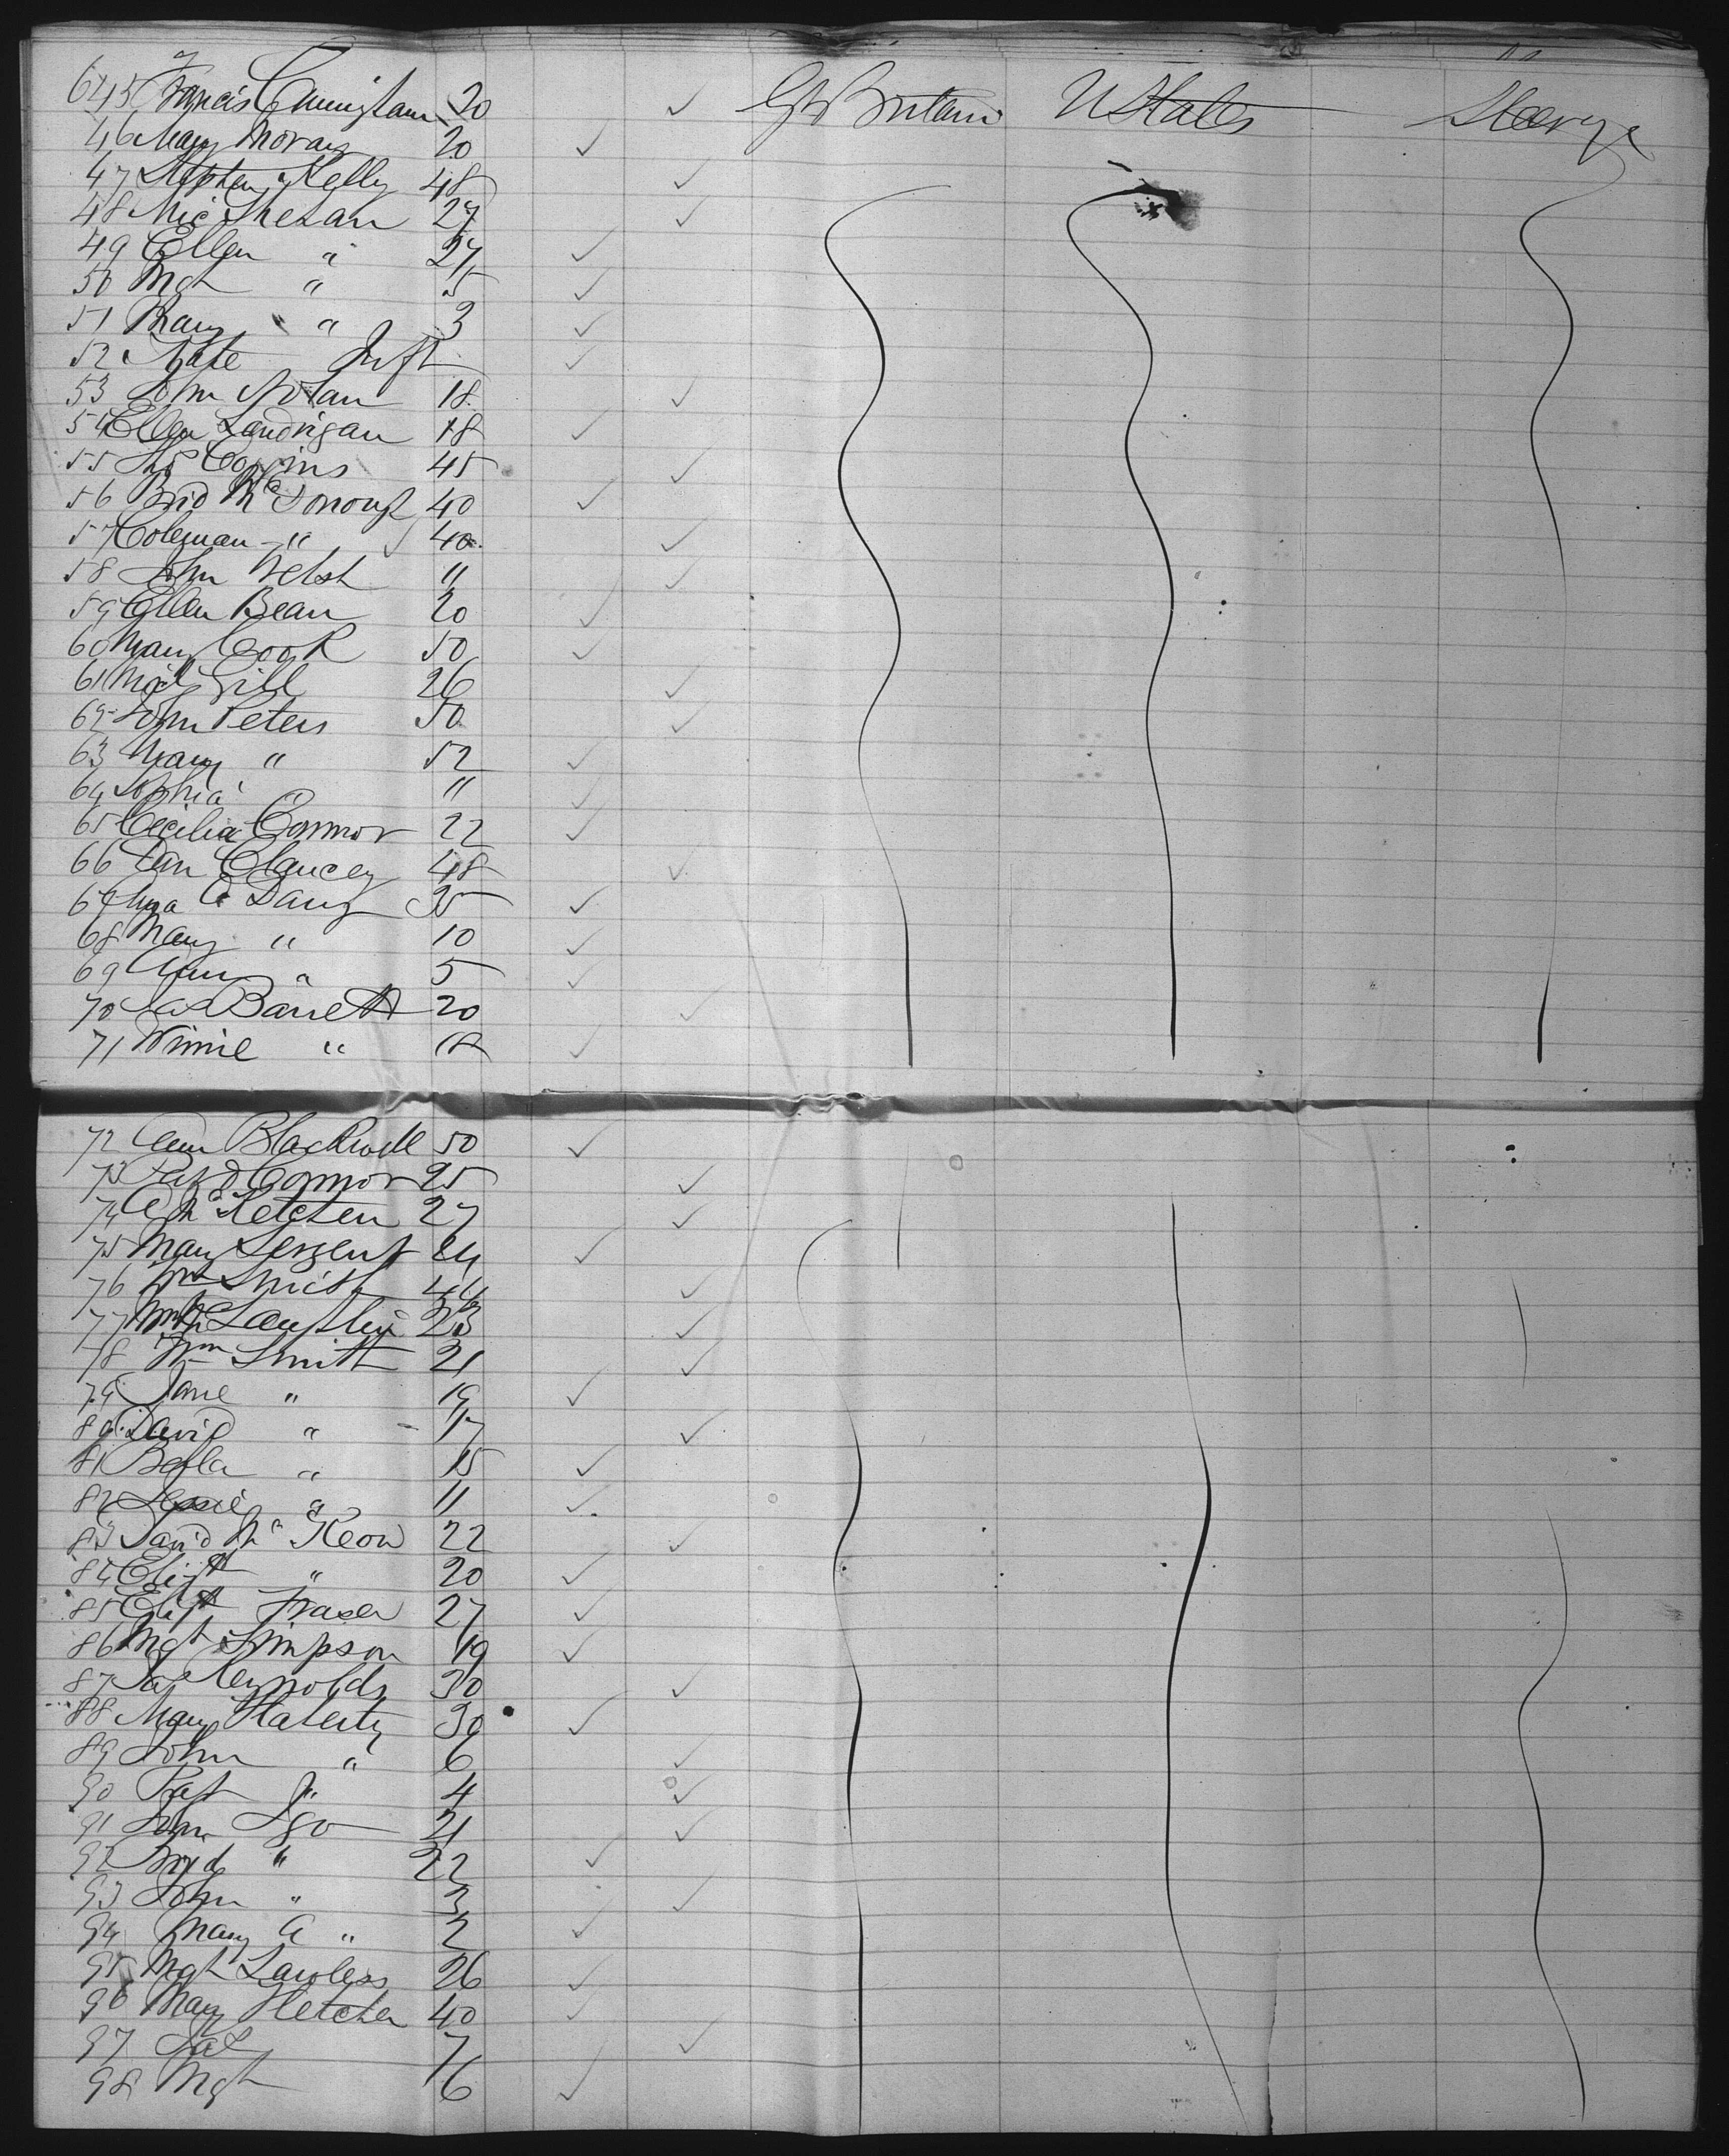 645 Francis Cuningham 20 ✓ Gt Britain U States Steerage
46 Mary Moran 20 ✓
47 Stephen Kelly 48 ✓
48 Mic Shehan 27 ✓
49 Ellen " 27 ✓
50 Mgt " 5 ✓
51 Mary " 3 ✓
52 Kate Inft ✓
53 John Nolan 18 ✓
54 Ellen Landrigan 18 ✓
55 Ths 45 ✓
56 Brid McDonough 40 ✓
57 Coleman " 40 ✓
58 John Welsh " ✓
59 Ellen Bean 20 ✓
60 Mary Cook 50 ✓
61 Micl Gill 26 ✓
62 John Peters 50 ✓
63 Mary " 52 ✓
64 Sophia " " ✓
65 Cecilia Connor 22 ✓
66 Dan Clancey 48 ✓
67 35 ✓
68 Mary " 10 ✓
69 " 5 ✓
70 Jas Barrett 20 ✓
71 Winnie " 18 ✓
72 Ann Blackwell 50 ✓
73 Connor 25 ✓
74 27 ✓
75 Mary Sergent 24 ✓
76 Wm Smith 44 ✓
77 23 ✓
78 Wm Smith 21 ✓
79 Jane " 19 ✓
80 David " 17 ✓
81 Bella " 15 ✓
82 Jessie " 11 ✓
83 David McKeow 22 ✓
84 Elizth " 20 ✓
85 Elizth Fraser 27 ✓
86 Mgt Simpson 19 ✓
87 Jas Reynolds 30 ✓
88 Mary Flaherty 30 ✓
89 John " 6 ✓
90 Pat " 4 ✓
91 John Igo 21 ✓
92 Brid " 22 ✓
93 John " 3 ✓
94 Mary A " 2 ✓
95 Mgt Lawless 26 ✓
96 Mary Fletcher 40 ✓
97 Jas 7 ✓
98 Mgt 6 ✓